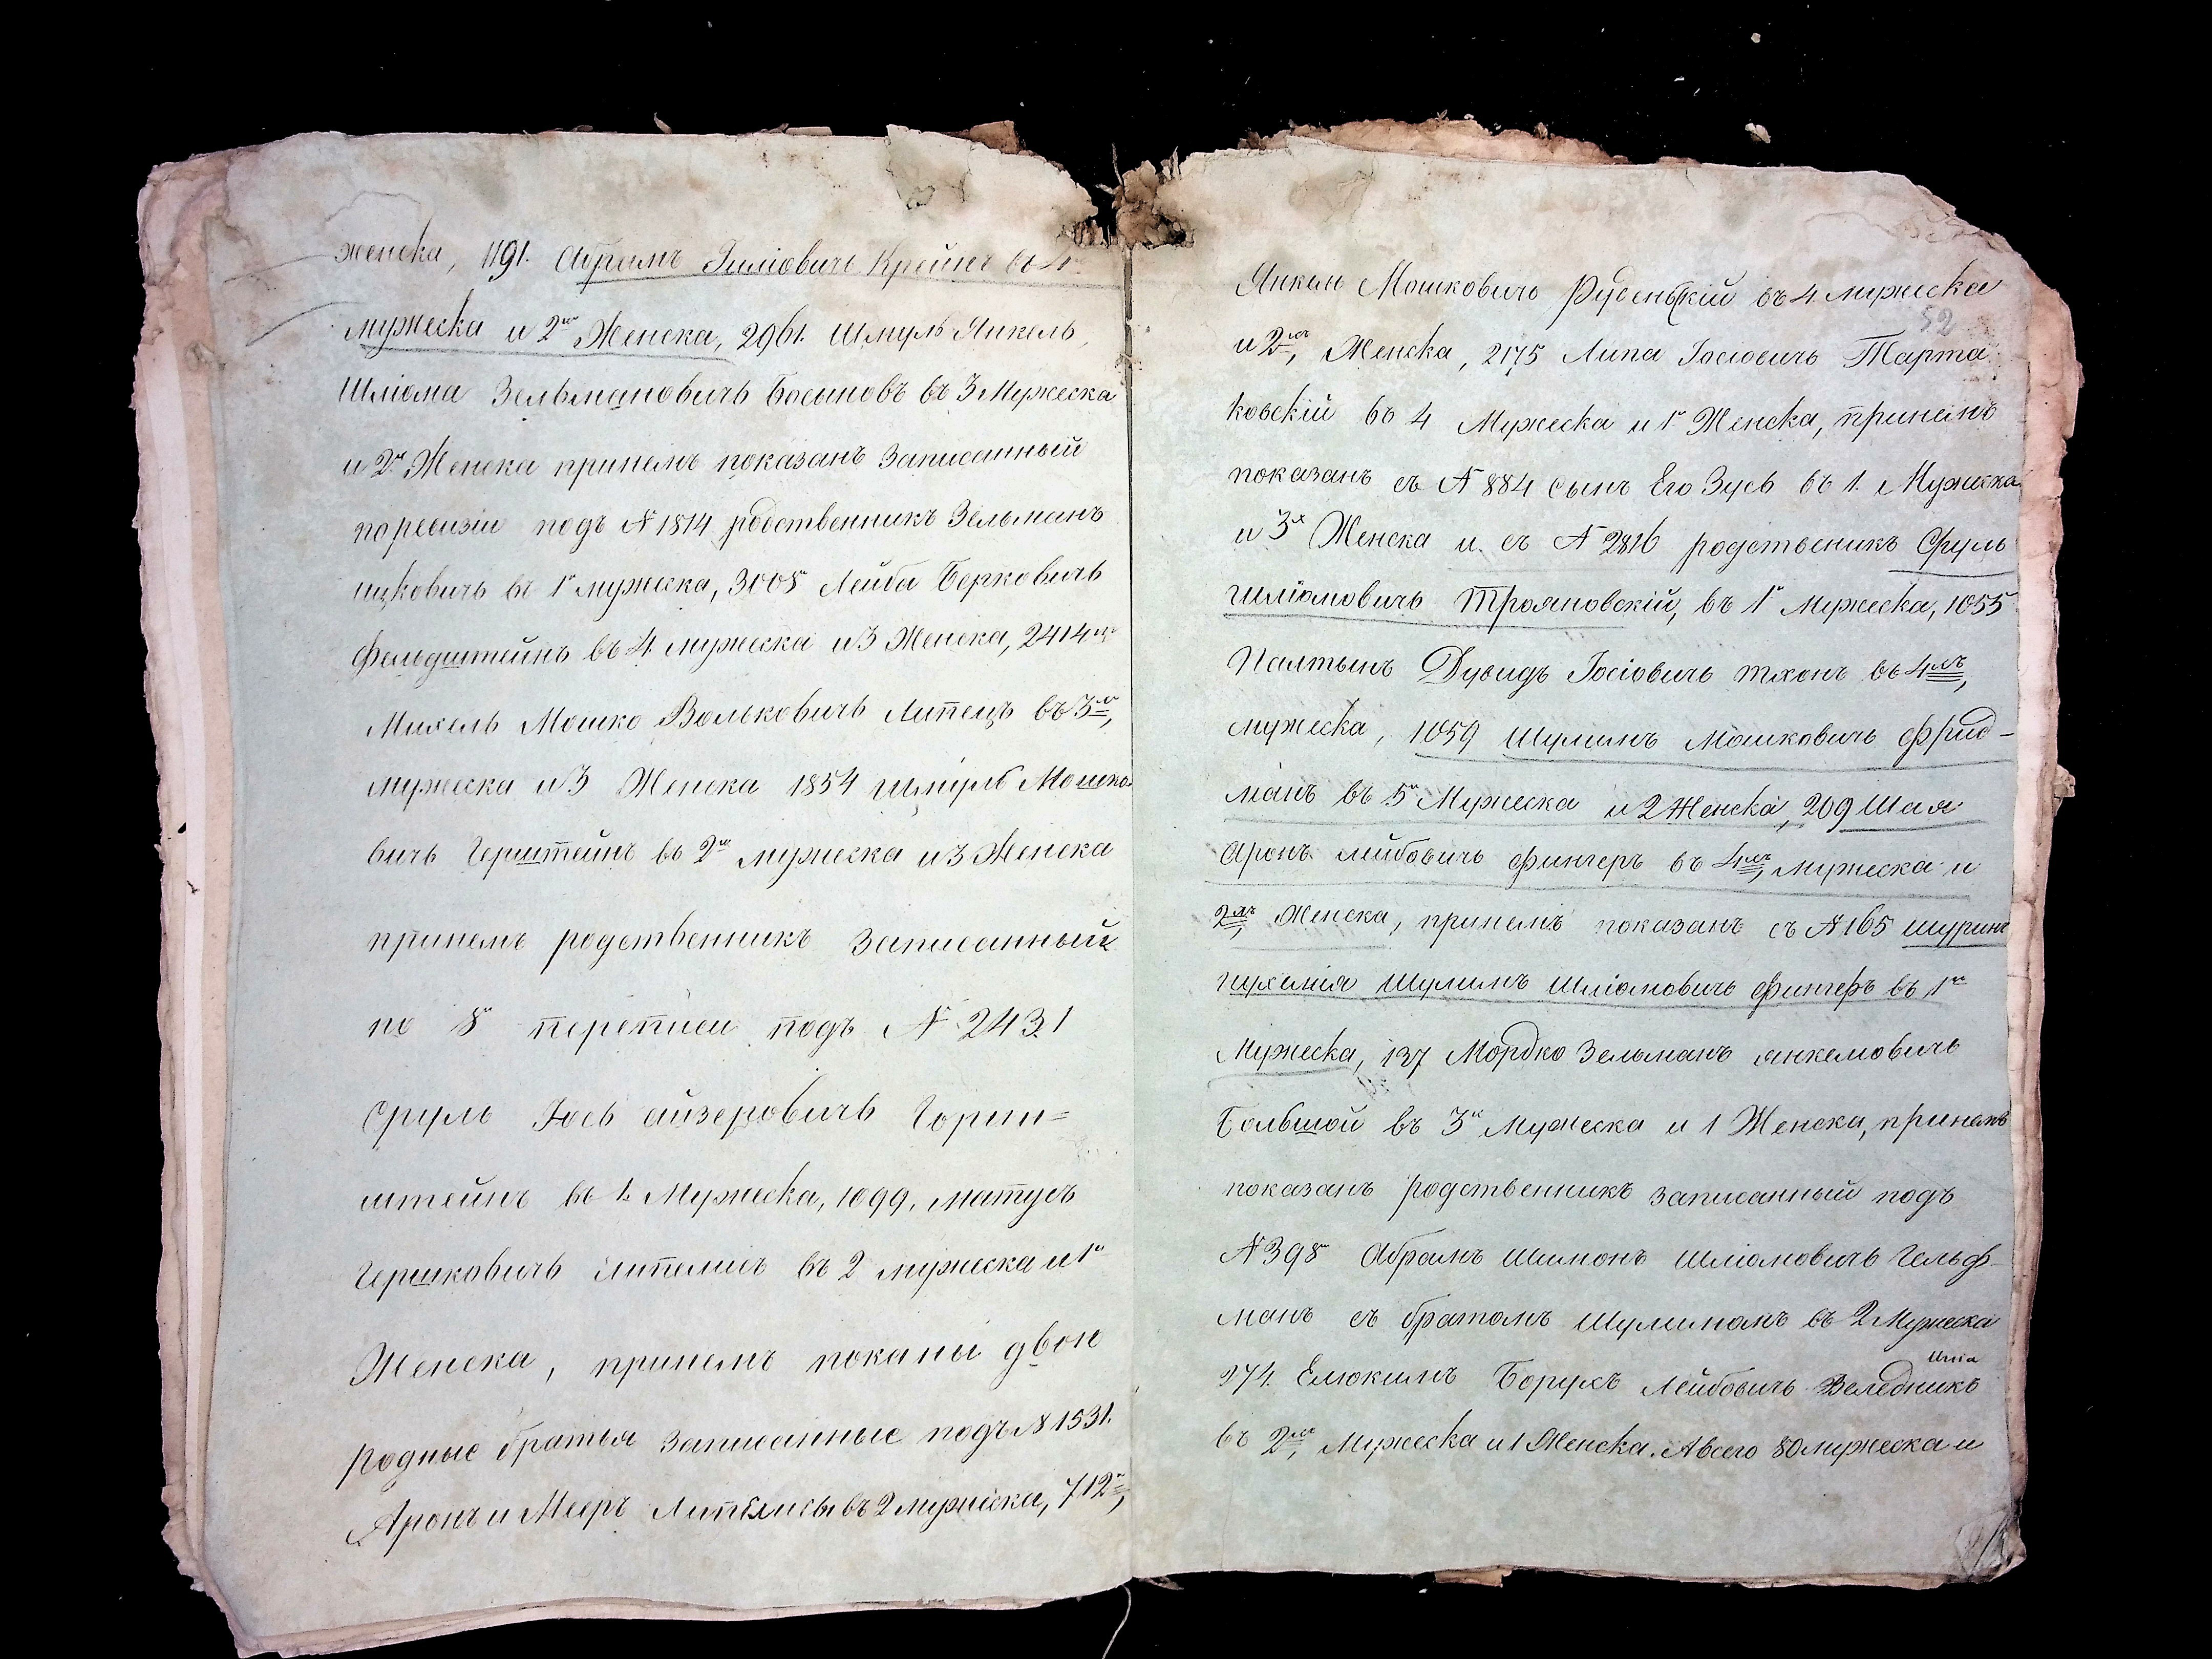 женска, 1191. Абрамъ Зиліовичъ Крейнъ въ 4
мужеска и 2хъ Женска, 2961. Шмуль Янкель
Шліома Зельмановичъ Босыновъ въ 3 Мужеска
и 2хъ Женска причемъ показанъ Записанный
по ревизіи подъ № 1814 родственникъ Зельманъ
ицковичъ въ 1мъ мужеска, 3005 Лейба Берковичъ
Фельдштейнъ въ 4 мужеска и 3 Женска, 2414
Михель Мошко Вольковичъ Липецъ въ 3хъ,
мужеска и 3 Женска 1854 Шмуль Мошко
вичъ Герштейнъ въ 2хъ мужеска и 3 Женска
причемъ родственникъ Записанный
по 8й переписи подъ № 2431
Сруль Іось айзеровичъ Горин=
штейнъ въ 1. Мужеска, 1099, матусъ
Гершковичъ Липелисъ въ 2 мужеска и 1й
Женска, причемъ показаны двою
родные братья Записанные подъ № 1531.
Аронъ и Мееръ Липелисы въ 2 мужеска, 712,
Янкель Мошковичъ Руденькій въ 4 мужеска
52
и 2хъ, Женска, 2175 Липа Іосіовичъ Тарта
ковскій въ 4 Мужеска и 1й Женска, причемъ
показанъ съ № 884 сынъ Его Зусь въ 1. Мужеска
и 3хъ Женска и съ № 2816 родственикъ Сруль
Шліомовичъ Трояновскій, въ 1й Мужеска, 1055
Палтынъ Дувидъ Іосіовичъ тхонъ въ 4хъ,
мужеска, 1059 Шулимъ Мошковичъ Фрид-
манъ въ 5й Мужеска и 2 Женска, 209 Шая
Аронъ лейбовичъ Фингеръ въ 4хъ, мужеска и
2хъ, Женска, причемъ показанъ съ № 165 Шуринъ
Нухемія Шулимъ Шліомовичъ Фингеръ въ 1й
Мужеска, 137 Мордко Зельманъ янкелювичъ
Большой въ 3й Мужеска и 1 Женска, причемъ
показанъ родственникъ записанный подъ
№ 398 Абрамъ Шимонъ Шліомовичъ Гельф-
манъ съ братомъ Шулимомъ въ 2 Мужеска
274 Елюкимъ Борухъ Лейбовичъ Веледникъ
въ 2хъ, Мужеска и 1 Женска. А всего 80 мужеска и